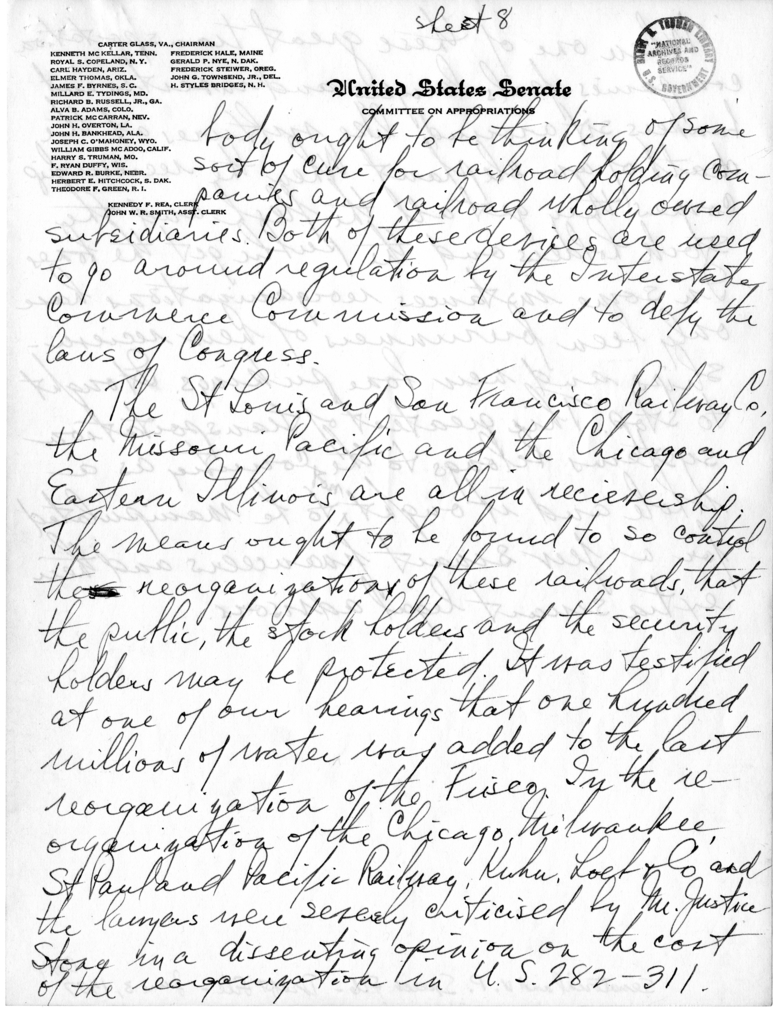 sheet 8
CARTER GLASS, VA., CHAIRMAN
KENNETH McKELLAR, TENN. FREDERICK HALE, MAINE
ROYAL S. COPELAND, N. Y. GERALD P. NYE, N. DAK.
CARL HAYDEN, ARIZ. FREDERICK STEIWER, OREG.
ELMER THOMAS, OKLA. JOHN G. TOWNSEND, JR., DEL.
JAMES F. BYRNES, S. C. H. STYLES BRIDGES, N. H.
MILLARD E. TYDINGS, MD.
RICHARD B. RUSSELL, JR., GA.
ALVA B. ADAMS, COLO.
PATRICK McCARRAN, NEV.
JOHN H. OVERTON, LA.
JOHN H. BANKHEAD, ALA.
JOSEPH C. O'MAHONEY, WYO.
WILLIAM GIBBS McADOO, CALIF.
HARRY S. TRUMAN, MO.
F. RYAN DUFFY, WIS.
EDWARD R. BURKE, NEBR.
HERBERT E. HITCHCOCK, S. DAK.
THEODORE F. GREEN, R. I.
KENNEDY F. REA, CLERK
JOHN W. R. SMITH, ASST. CLERK
HARRY S. TRUMAN LIBRARY
"NATIONAL
ARCHIVES AND
RECORDS
SERVICE"
U.S. GOVERNMENT
United States Senate
COMMITTEE ON APPROPRIATIONS
body ought to be thinking of some
sort of cure for railroad holding com-
panies and railroad wholly owned
subsidiaries. Both of these devices are used
to go around regulation by the Interstate
Commerce Commission and to defy the
laws of Congress.
The St Louis and San Francisco Railway Co,
the Missouri Pacific and the Chicago and
Eastern Illinois are all in recievership.
The means ought to be found to so control
the reorganization of these railroads, that
the public, the stock holders and the security
holders may be protected. It was testified
at one of our hearings that one hundred
millions of water was added to the last
reorganization of the Frisco. In the re-
organization of the Chicago, Milwaukee,
St Paul and Pacific Railway, Kuhn, Loeb & Co, and
the lawyers were severly criticised by Mr. Justice
Stone in a dissenting opinion on the cost
of the reorganization in U. S. 282-311.